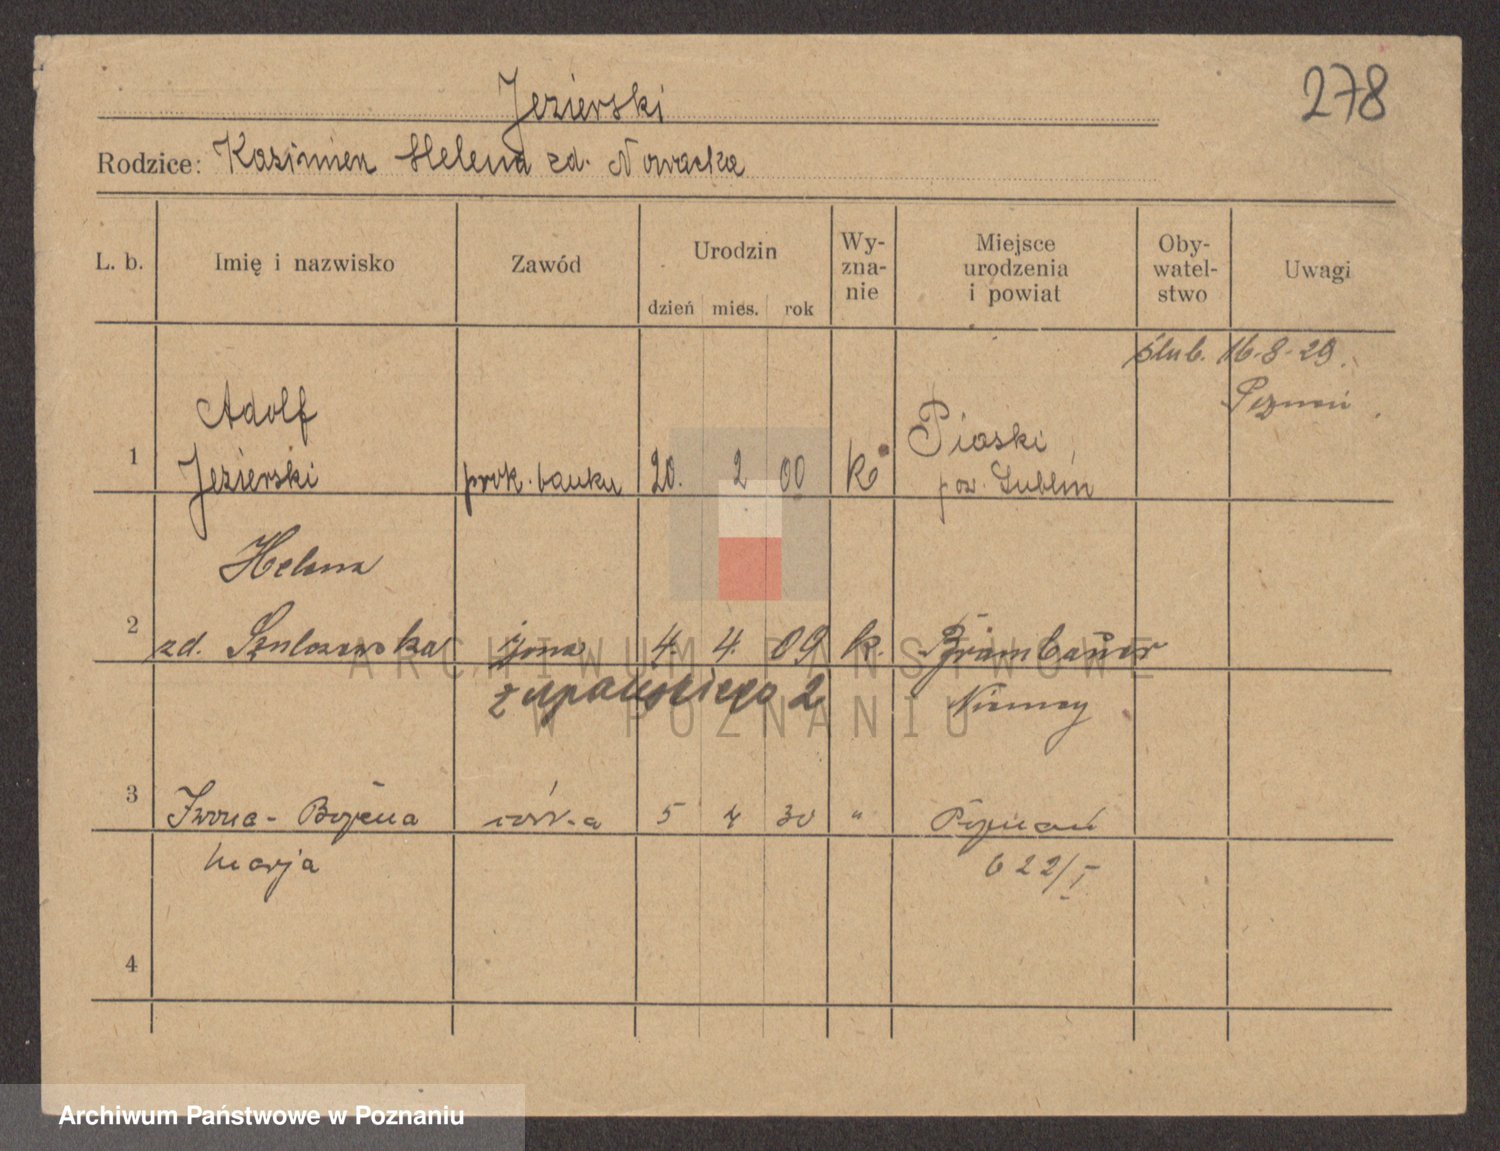 278
Jezierski
Rodzice: Kazimierz Helena zd. Nowacka
L. b. Imię i nazwisko Zawód Urodzin dzień mies. rok Wy-zna-nie Miejsce urodzenia i powiat Oby-watel-stwo Uwagi
ślub. 16-8-29.
Poznań.
Adolf
1 Jezierski prok. banku 20. 2 00 k Piaski
pow. Lublin
Helena
2 zd. żona 4. 4. 09 k.
Żupańskiego 2 Niemcy
3 Iwona - Bożena córka 5 30 " Poznań
Marja 622/I
4
ARCHIWUM PAŃSTWOWE
W POZNANIU
Archiwum Państwowe w Poznaniu